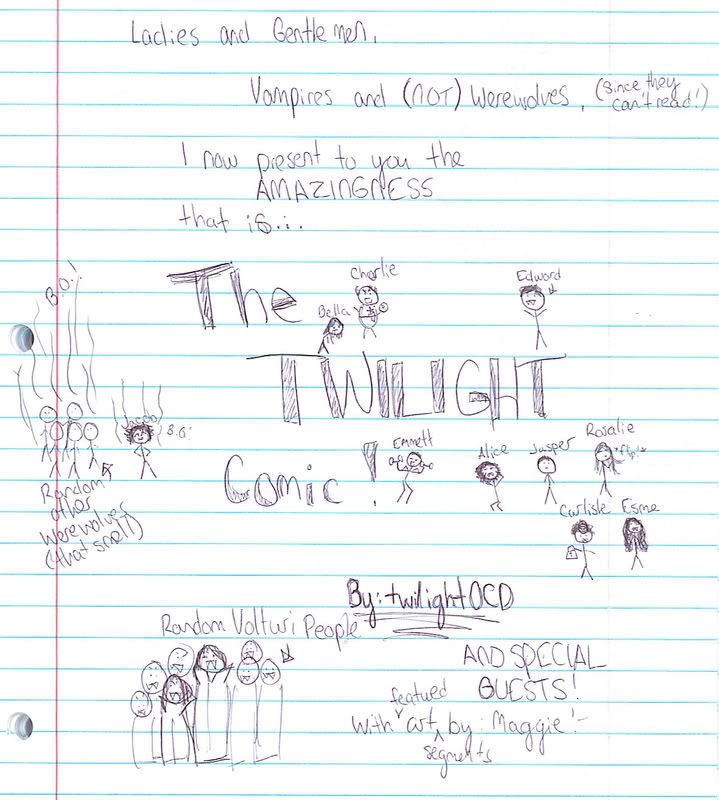 Ladies and Gentlemen,
Vampires and (NOT) Werewolves, (since they
can't read!)
I now present to you the
AMAZINGNESS
that is...
B.O.!
The
Bella
Charlie
Edward
TWILIGHT
Jacob
B.O!
Comic!
Emmett
Alice
Jasper
Rosalie
*flip!*
Carlisle
Esme
Random
other
werewolves
(that smell)
By: twilightOCD
Random Volturi People
AND SPECIAL
GUESTS!
featued
With art by: Maggie!
segments